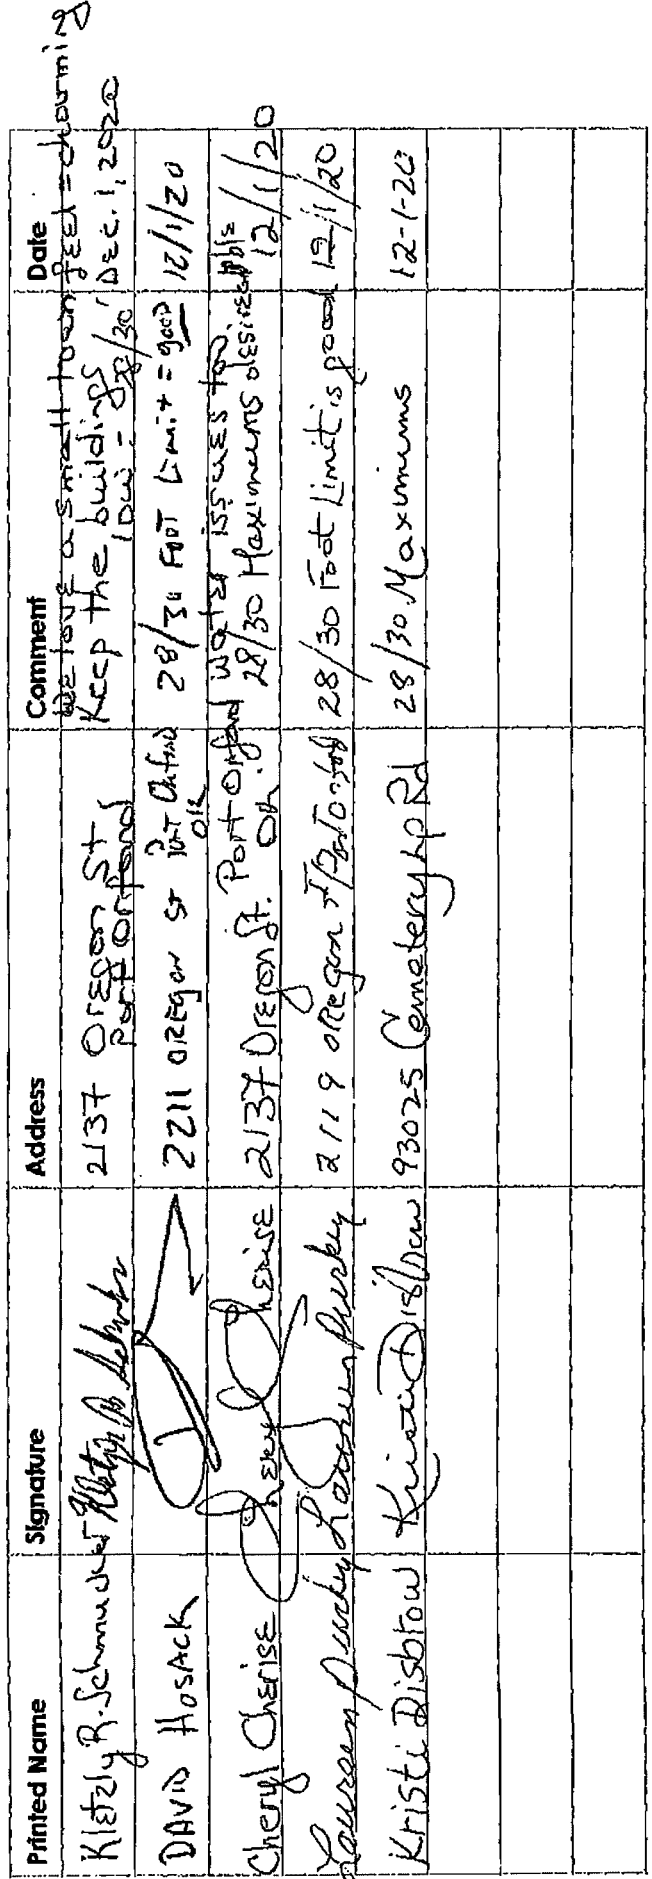 Printed Name Signature Address Comment Date
Kletzly R. Schmucker 2137 Oregon St Port Orford We love a small town feel = charming Keep the buildings low - 28/30' Dec. 1, 2020
DAVID HOSACK 2211 OREGON ST Port Orford OR 28/30 FOOT Limit = good 12/1/20
Cheryl Cherise Cheryl Cherise 2137 Oregon St. Port Orford OR. Water issues too 28/30 Maximums desireable 12/1/20
Laureen Purkey Laureen Purkey 2119 Oregon St Port Orford 28/30 Foot Limit is good 12/1/20
Kristi Disbrow Kristi Disbrow 93025 Cemetery Lp Rd 28/30 Maximums 12-1-20